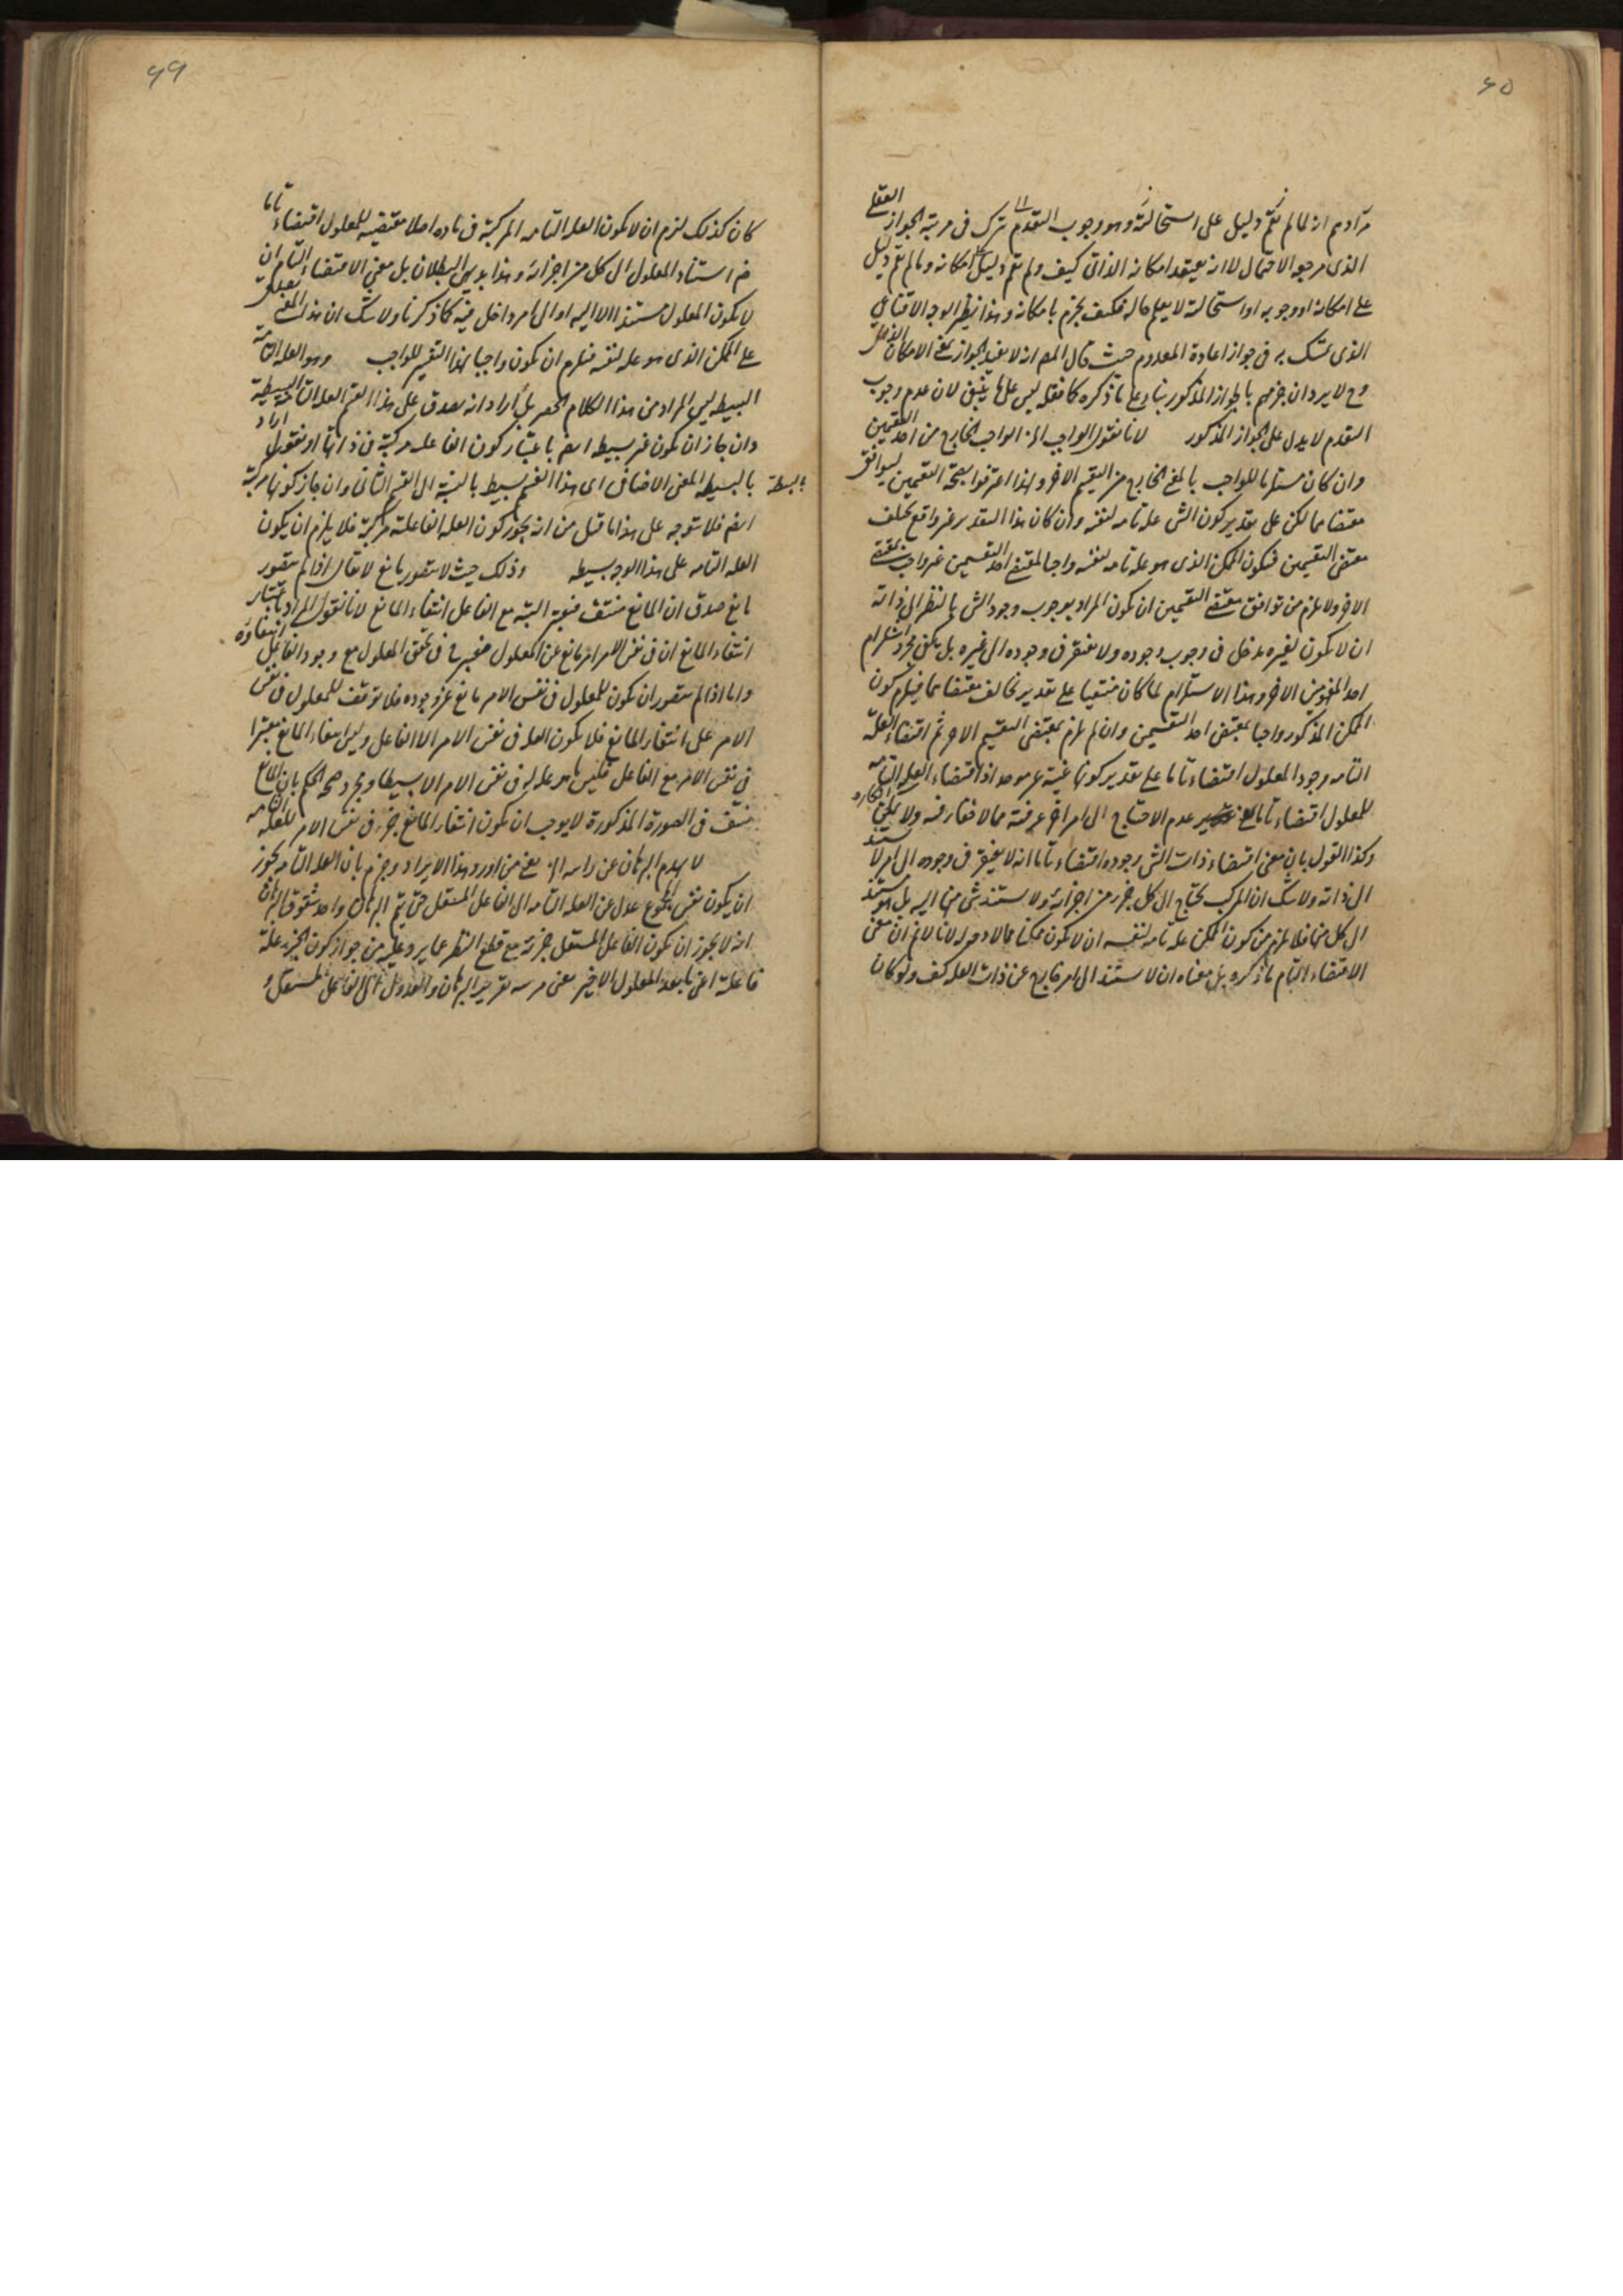 ٦٥
مرادهم انه لما لم يقم دليل على استحالته وهو وجوب التقدم ترك فى مرتبة الجواز العقلى
الذى مرجعه الاحتمال لا انه يعتقد امكانه الذاتى كيف ولم يقم دليل امكانه وما لم يقم دليل
على امكانه او وجوبه او استحالته لا يعلم حاله فكيف يجزم بامكانه وهذا نظير الوجه الاقناعى
الذى تمسك به فى جواز اعادة المعدوم حيث قال المصـ انه لا يفيد الجواز بمعنى الامكان الذاتى
وح لا يرد ان جزمهم بالجواز المذكور بناء على ما ذكره كما فعله ليس على ما ينبغى لان عدم وجوب
التقدم لا يدل على الجواز المذكور لانا نقول الواجب الخ الواجب الخارج من احد التقسيمين
وان كان مستلزما للواجب بالمعنى الخارج من التقسيم الاخر ولهذا اعترفوا بصحة التقسيمين ليوافق
مقتضاهما لكن على تقدير كون الشى علة تامة لنفسه وان كان هذا التقدير غير واقع يختلف
مقتضى التقسيمين فيكون الممكن الذى هو علة تامة لنفسه واجبا لمقتضى احد التقسيمين غير واجب بمقتضى
الاخر ولا يلزم من توافق مقتضى التقسيمين ان يكون المراد بوجوب وجود الشى بالنظر الى ذاته
ان لا يكون لغيره مدخل فى وجوب وجوده ولا يفتقر فى وجوده الى غيره بل يكفى مجرد استلزام
احد المفهومين الاخر وهذا الاستلزام لما كان منتفيا على تقدير تخالف مقتضاهما فيلزم كون
الممكن المذكور واجبا بمقتضى احد التقسيمين وان لم يلزم بمقتضى التقسيم الاخر ثم اقتضاء العلة
التامة وجود المعلول اقتضاء تاما على تقدير كونها غنية عن موجد اذ اقتضاء العلة التامة
للمعلول اقتضاء تاما بمعنى عدم الاحتياج الى امر اخر عرفته مما لا خفاء فيه ولا يمكن انكاره
وكذا القول بان معنى اقتضاء ذات الشى وجوده اقتضاء تاما انه لا يفتقر فى وجوده الى امر لا يستند
الى ذاته ولا شك ان المركب يحتاج الى كل جزء من اجزائه ولا يستند شى منها اليه بل هو مستند
الى كل منها فلا يلزم من كون الممكن علة تامة لنفسه ان لا يكون ممكنا لانا لا نم ان معنى
الاقتضاء التام ما ذكره بل معناه ان لا يستند الى امر خارج عن ذات العلة كيف ولو كان
٦٦
كان كذلك لزم ان لا يكون العلة التامة المركبة فى مادة اصلا مقتضية للمعلول اقتضاء تاما
ضـ استناد المعلول الى كل من اجزائه وهذا بديهى البطلان بل معنى الاقتضاء التام ان
لا يكون المعلول مستندا الا اليه او الى امر داخل فيه كما ذكرنا ولا شك ان هذا المعنى يصدق
على الممكن الذى هو علة لنفسه فيلزم ان يكون واجبا بهذا التفسير للواجب وهو العلة التامة
البسيطة ليس المراد من هذا الكلام الحصر بل اراد انه يصدق على هذا القسم العلة التامة البسيطة
وان جاز ان يكون غير بسيطة ايضا باعتبار كون الفاعل مركبة فى ذاتها او نقول اراد
بالبسيطة المعنى الاضافى اى هذا القسم بسيط بالنسبة الى القسم الثانى وان جاز كونها مركبة
بالبسيطة
ايضا فلا يتوجه على هذا ما قيل من انه يجوز كون العلة الفاعلية مركبة فلا يلزم ان يكون
العلة التامة على هذا الوجه بسيطة وذلك حيث لا يتصور مانع لا يقال اذا لم يتصور
مانع صدق ان المانع منتف فيعتبر البتة مع الفاعل انتفاء المانع لانا نقول المراد باعتبار
انتفاء المانع ان فى نفس الامر امر مانع عن المعلول فيعتبر فى تحقق المعلول مع وجود الفاعل انتفاؤه
واما اذا لم يتصور ان يكون للمعلول فى نفس الامر مانع عن وجوده فلا توقف للمعلول فى نفس
الامر على انتفاء المانع فلا يكون العلة فى نفس الامر الا الفاعل وليس انتفاء المانع معتبرا
فى نفس الامر مع الفاعل فليس ما هو علة له فى نفس الامر الا بسيطا ومجرد صحة الحكم بان المانع
منتف فى الصورة المذكورة لا يوجب ان يكون انتفاء المانع جزء فى نفس الامر للعلة التامة
لا يهدم البرهان عن راسه الخ يعنى من اورد هذا الايراد وجزم بان العلة التامة يجوز
ان يكون نفس المجموع عدل عن العلة التامة الى الفاعل المستقل حتى يتم البرهان واحد شقوق البرهان
انه لا يجوز ان يكون الفاعل المستقل جزءه مع قطع النظر عما يرد عليه من جواز كون الجزء علة
فاعلة اعنى ما بعد المعلول الاخير يعنى تقرير البرهان والعدول الى الفاعل المستقل